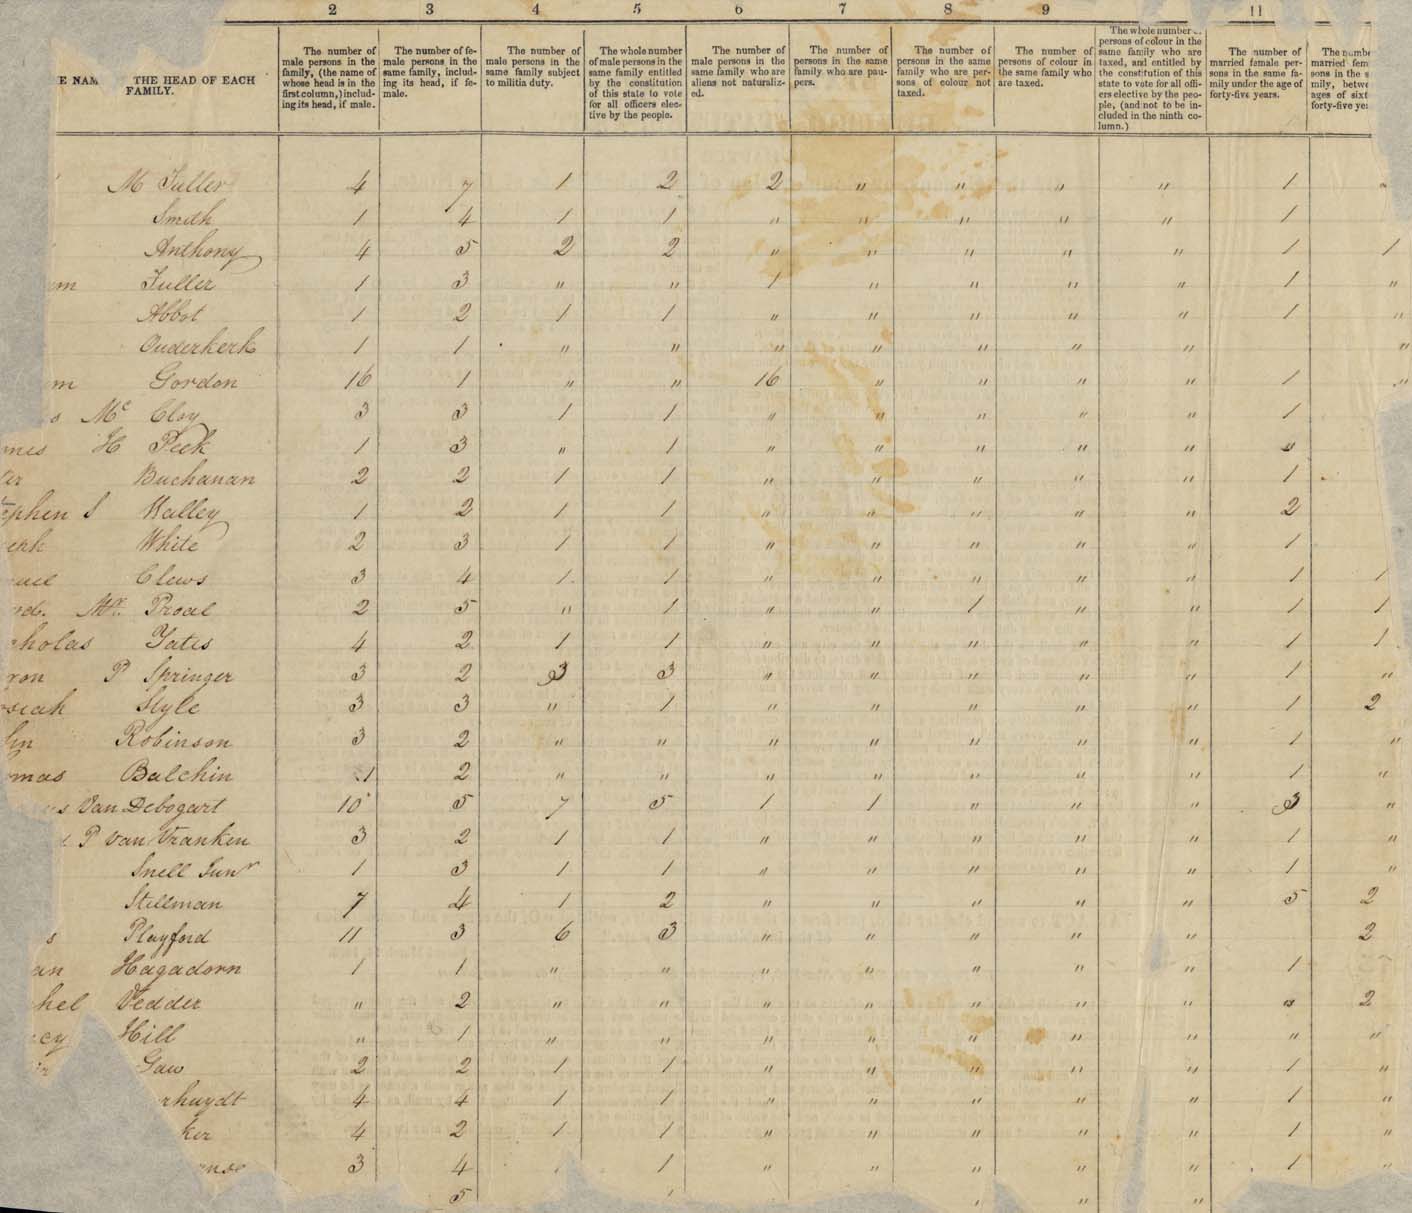 2 3 4 5 6 7 8 9 11
E NAM THE HEAD OF EACH FAMILY.
The number of male persons in the family, (the name of whose head is in the first column,) including its head, if male.
The number of female persons in the same family, including its head, if female.
The number of male persons in the same family subject to militia duty.
The whole number of male persons in the same family entitled by the constitution of this state to vote for all officers elective by the people.
The number of male persons in the same family who are aliens not naturalized.
The number of persons in the same family who are paupers.
The number of persons in the same family who are persons of colour not taxed.
The number of persons of colour in the same family who are taxed.
The whole number of persons of colour in the same family who are taxed, and entitled by the constitution of this state to vote for all officers elective by the people, (and not to be included in the ninth column.)
The number of married female persons in the same family under the age of forty-five years.
The numbe married fem sons in the s mily, betwe ages of sixt forty-five ye
M Fuller 4 7 1 2 2 " " " " 1
Smith 1 4 1 1 " " " " " 1
Anthony 4 5 2 2 " " " " " 1 1
m Fuller 1 3 " " 1 " " " " 1 "
Abbot 1 2 1 1 " " " " " 1 "
Ouderkerk 1 1 " " " " " " " "
m Gordon 16 1 " " 16 " " " " 1 "
s Mc Cloy 3 3 1 1 " " " " " 1
mes H Peek 1 3 " 1 " " " " " "
er Buchanan 2 2 1 1 " " " " " 1
ephen S Kalley 1 2 1 1 " " " " " 2
eph White 2 3 1 1 " " " " " 1
uel Clews 3 4 1 1 " " " " " 1 1
rd. Mr. Proal 2 5 " 1 " " 1 " " 1 1
cholas Yates 4 2 1 1 " " " " " 1 1
ron P Springer 3 2 3 3 " " " " " 1 "
siah Slyle 3 3 " 1 " " " " " 1 2
hn Robinson 3 2 " " " " " " " 1 "
omas Balchin 1 2 " " " " " " " 1 "
s Van Debogart 10 5 7 5 1 1 " " " 3 "
P van Vranken 3 2 1 1 " " " " " 1 "
Snell Junr 1 3 1 1 " " " " " 1 "
Stillman 7 4 1 2 " " " " " 5 2
s Playford 11 3 6 3 " " " " " 2
an Hagadorn 1 1 " " " " " " " 1
hel Vedder " 2 " " " " " " " " 2
cy Hill " 1 " " " " " " " " "
Gaw 2 2 1 1 " " " " " 1 "
rhuydt 4 4 1 1 " " " " " 1 "
ker 4 2 1 1 " " " " " 1 "
ense 3 4 1 1 " " " " " 1 "
5 " "